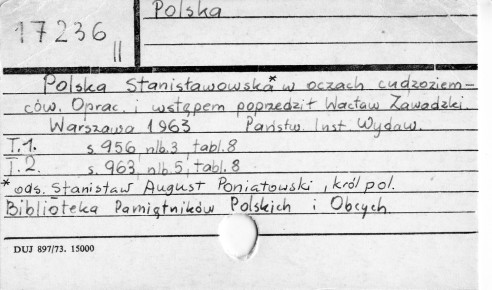 Polska
17236
II
Polska Stanisławowska* w oczach cudzoziem-
ców. Oprac. i wstępem poprzedził Wacław Zawadzki.
Warszawa 1963 Państw. Inst. Wydaw.
T.1. s. 956 nlb.3, tabl. 8
T.2. s. 963, nlb. 5, tabl. 8
* ods. Stanisław August Poniatowski, król pol.
Biblioteka Pamiętników Polskich i Obcych.
DUJ 897/73. 15000